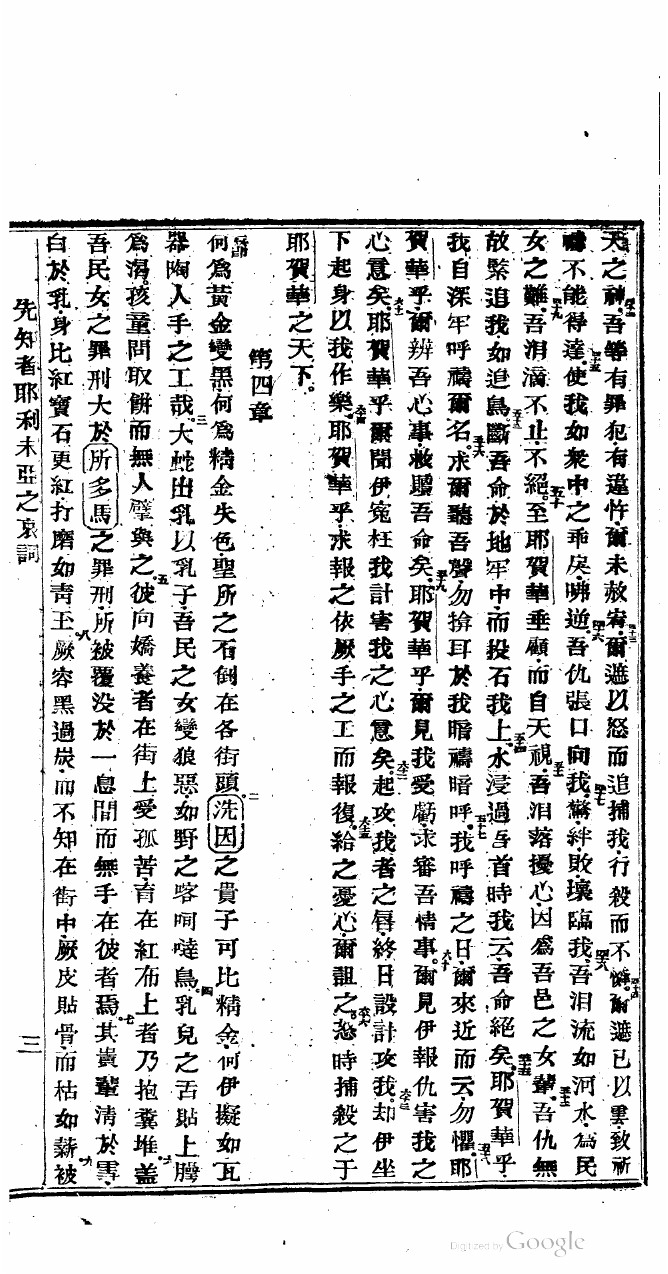 天之神吾等有罪犯有違忤爾未赦宥爾遮以怒而追捕我行殺而不憐爾遮已以雲致祈
禱不能得達使我如衆中之乖戾咈逆吾仇張口向我驚絆敗壞臨我吾泪流如河水為民
女之難吾泪滴不止不絕至耶賀華垂顧而自天視吾泪落擾心因為吾邑之女輩吾仇無
故緊追我如追鳥斷吾命於地牢中而投石我上水浸過吾首時我云吾命絕矣耶賀華乎
我自深牢呼禱爾名求爾聽吾聲勿揜耳於我暗禱暗呼我呼禱之日爾來近而云勿懼耶
賀華乎爾辨吾心事救贖吾命矣耶賀華乎爾見我受虧求審吾情事爾見伊報仇害我之
心意矣耶賀華乎爾聞伊寃枉我計害我之心意矣起攻我者之唇終日設計攻我却伊坐
下起身以我作樂耶賀華乎求報之依厥手之工而報復給之憂心爾詛之怒時捕殺之于
耶賀華之天下
第四章
何為黃金變黑何為精金失色聖所之石倒在各街頭洗因之貴子可比精金何伊擬如瓦
器陶人手之工哉大蛇出乳以乳子吾民之女變狼惡如野之喀呵噠鳥乳兒之舌貼上腭
為渴孩童問取餅而無人擘與之彼向嬌養者在街上受孤苦育在紅布上者乃抱糞堆蓋
吾民女之罪刑大於所多馬之罪刑所被覆没於一息間而無手在彼者焉其貴輩清於雪
白於乳身比紅寶石更紅打磨如青玉厥容黑過炭而不知在街中厥皮貼骨而枯如薪被
先知者耶利未亞之哀詞
三
Digitized by Google